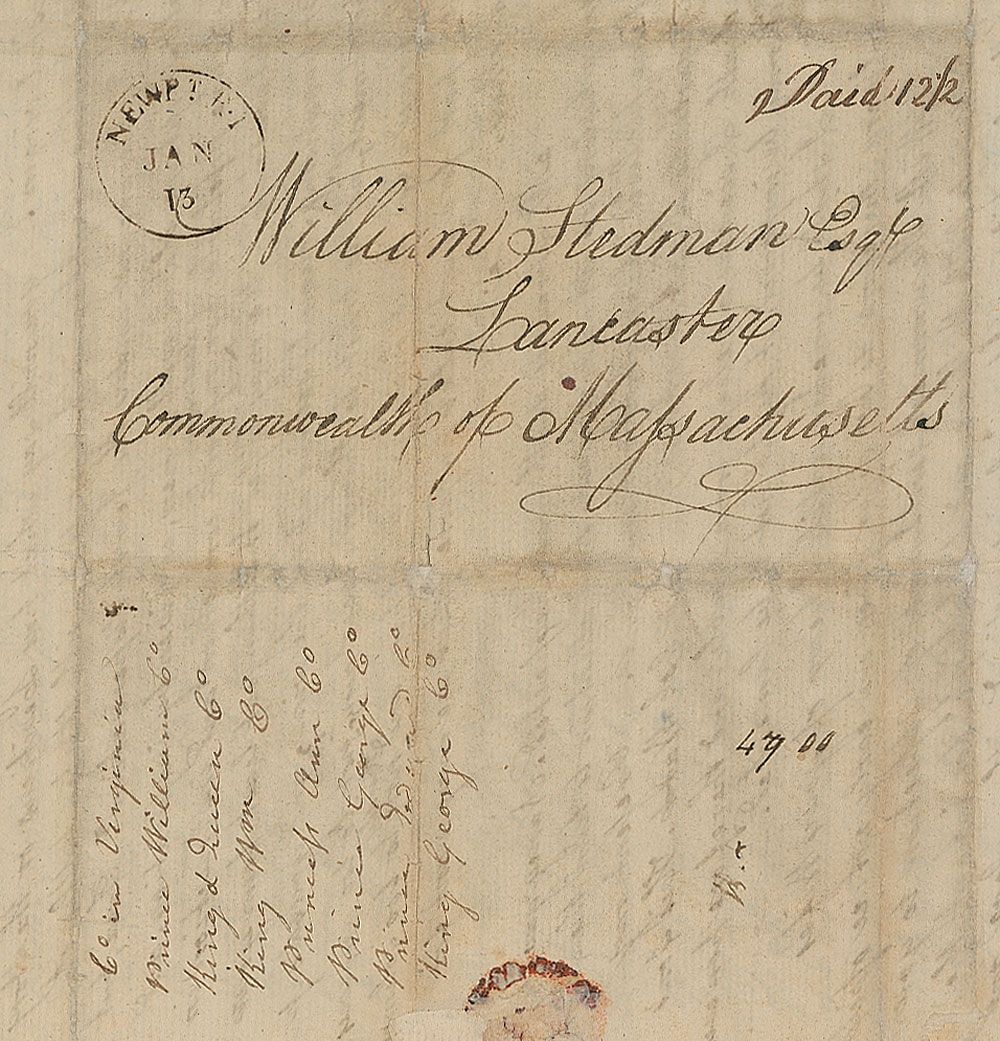 NEWPT R I
JAN
13
Paid 12 1/2
William Stedman Esqr
Lancaster
Commonwealth of Massachusetts
Co in Virginia
Prince William Co
King & Queen Co
King Wm Co
Princess Ann Co
Prince George Co
Prince Edward Co
King George Co
4700